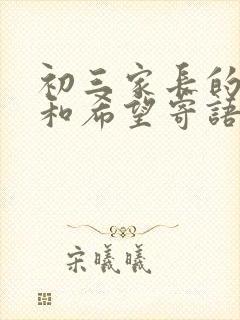 初三家长的
和希望寄语
宋曦曦